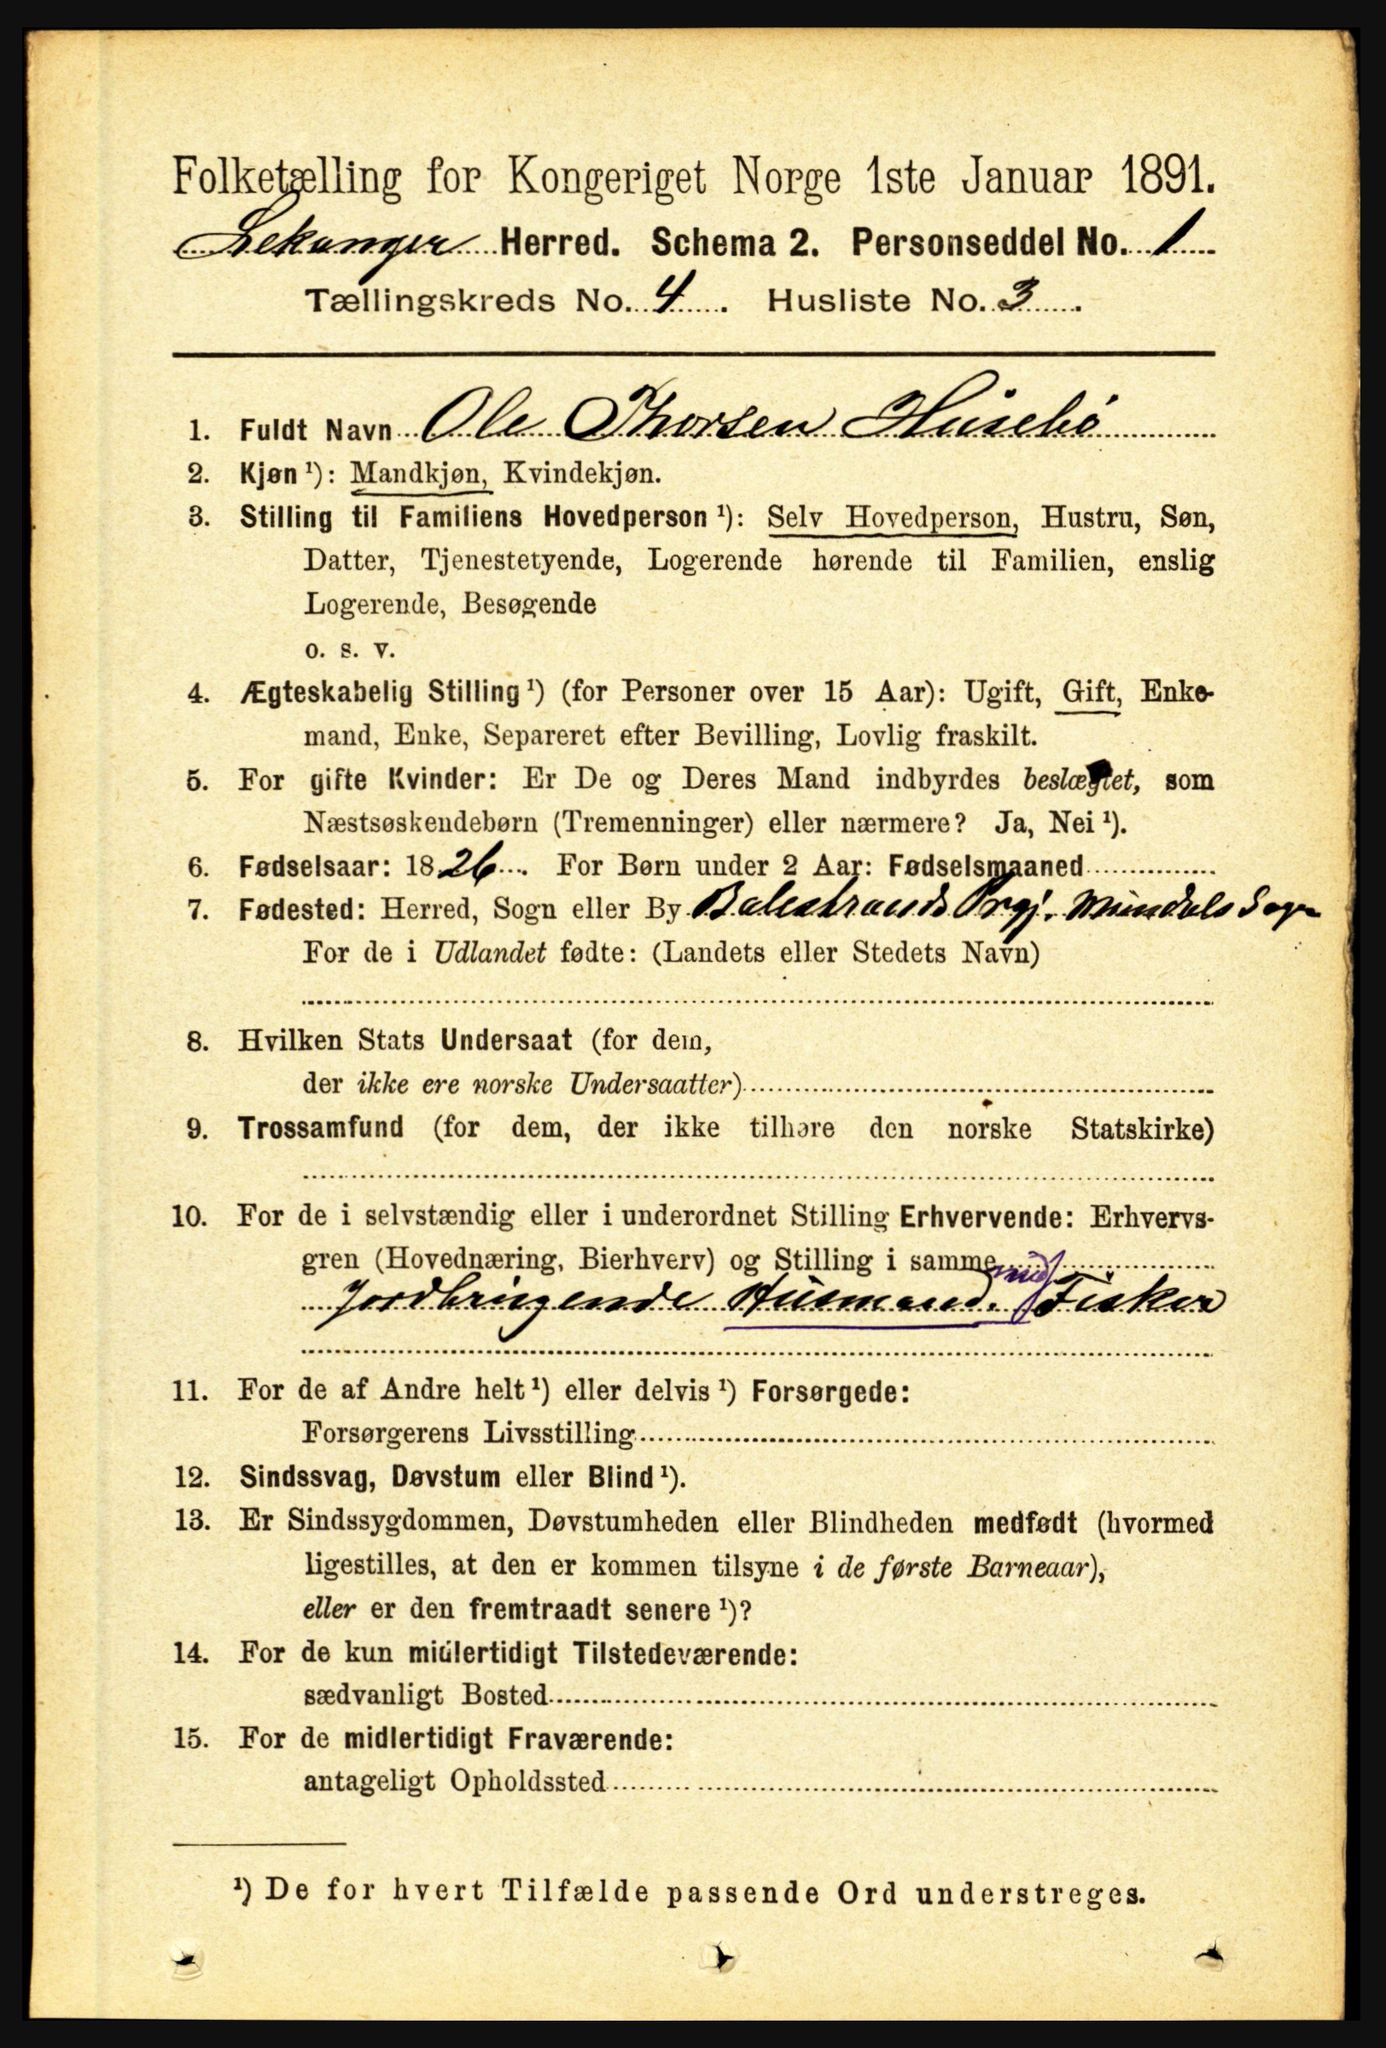 Folketælling for Kongeriget Norge 1ste Januar 1891.
Lekanger Herred. Schema 2. Personseddel No. 1
Tællingskreds No. 4. Husliste No. 3.
1. Fuldt Navn Ole Thorsen Husebö
2. Kjøn ¹): Mandkjøn, Kvindekjøn.
3. Stilling til Familiens Hovedperson ¹): Selv Hovedperson, Hustru, Søn,
Datter, Tjenestetyende, Logerende hørende til Familien, enslig
Logerende, Besøgende
o. s. v.
4. Ægteskabelig Stilling ¹) (for Personer over 15 Aar): Ugift, Gift, Enke-
mand, Enke, Separeret efter Bevilling, Lovlig fraskilt.
5. For gifte Kvinder: Er De og Deres Mand indbyrdes beslægtet, som
Næstsøskendebørn (Tremenninger) eller nærmere? Ja, Nei ¹).
6. Fødselsaar: 1826. For Børn under 2 Aar: Fødselsmaaned
7. Fødested: Herred, Sogn eller By Balestrands Prgj. Mundals Sogn
For de i Udlandet fødte: (Landets eller Stedets Navn)
8. Hvilken Stats Undersaat (for dem,
der ikke ere norske Undersaatter)
9. Trossamfund (for dem, der ikke tilhøre den norske Statskirke)
10. For de i selvstændig eller i underordnet Stilling Erhvervende: Erhvervs-
gren (Hovednæring, Bierhverv) og Stilling i samme
Jordbrugende Husmand. Fisker
11. For de af Andre helt ¹) eller delvis ¹) Forsørgede:
Forsørgerens Livsstilling
12. Sindssvag, Døvstum eller Blind ¹).
13. Er Sindssygdommen, Døvstumheden eller Blindheden medfødt (hvormed
ligestilles, at den er kommen tilsyne i de første Barneaar),
eller er den fremtraadt senere ¹)?
14. For de kun midlertidigt Tilstedeværende:
sædvanligt Bosted
15. For de midlertidigt Fraværende:
antageligt Opholdssted
¹) De for hvert Tilfælde passende Ord understreges.